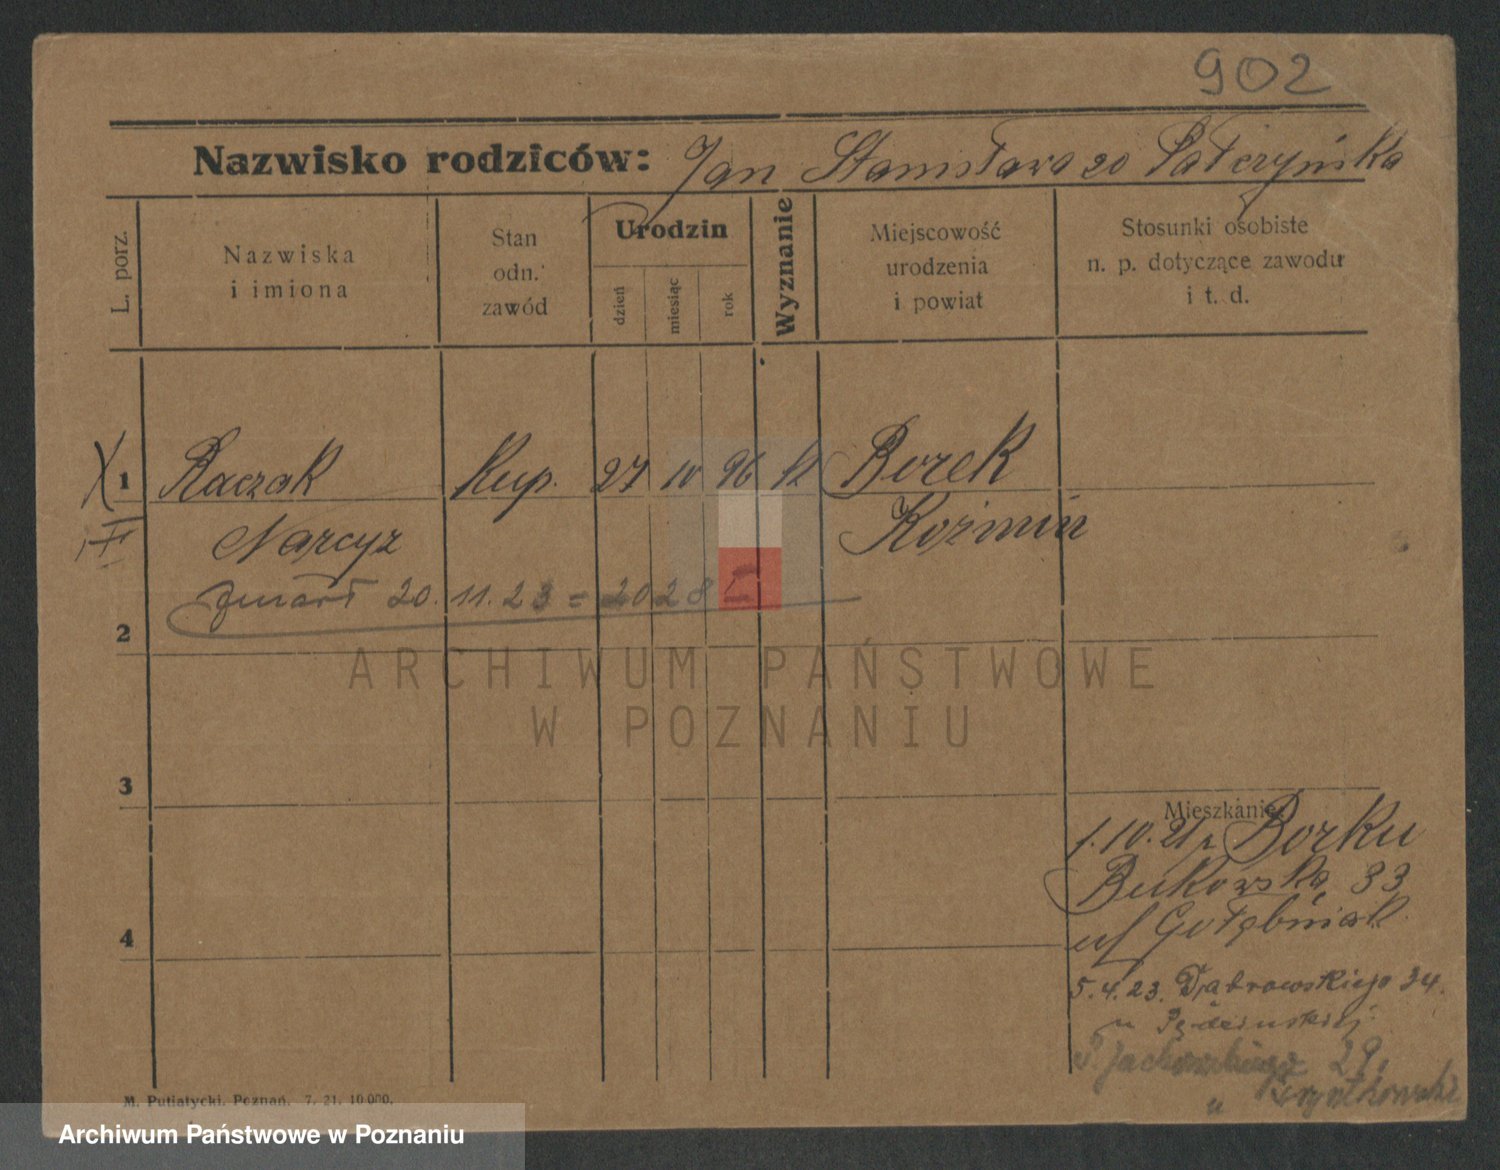 902
Nazwisko rodziców: Jan Stanisława zo Pałczyńska
L. porz.
Nazwiska
i imiona
Stan
odn.
zawód
Urodzin
dzień
miesiąc
rok
Wyznanie
Miejscowość
urodzenia
i powiat
Stosunki osobiste
n. p. dotyczące zawodu
i t. d.
X 1 Raczak Kup. 27 10 96 kt Borek
Narcyz Koźmin
zmarł 20.11.23 = 2028 I
2
ARCHIWUM PAŃSTWOWE
W POZNANIU
3
Mieszkanie:
1.10.21 z Borku
Bukowska 33
u/ Gołębniak
4
5.4.23. Dąbrowskiego 34.
u
P. Jackowskiego 29,
u
M. Putiatycki, Poznań. 7. 21. 10 000.
Archiwum Państwowe w Poznaniu